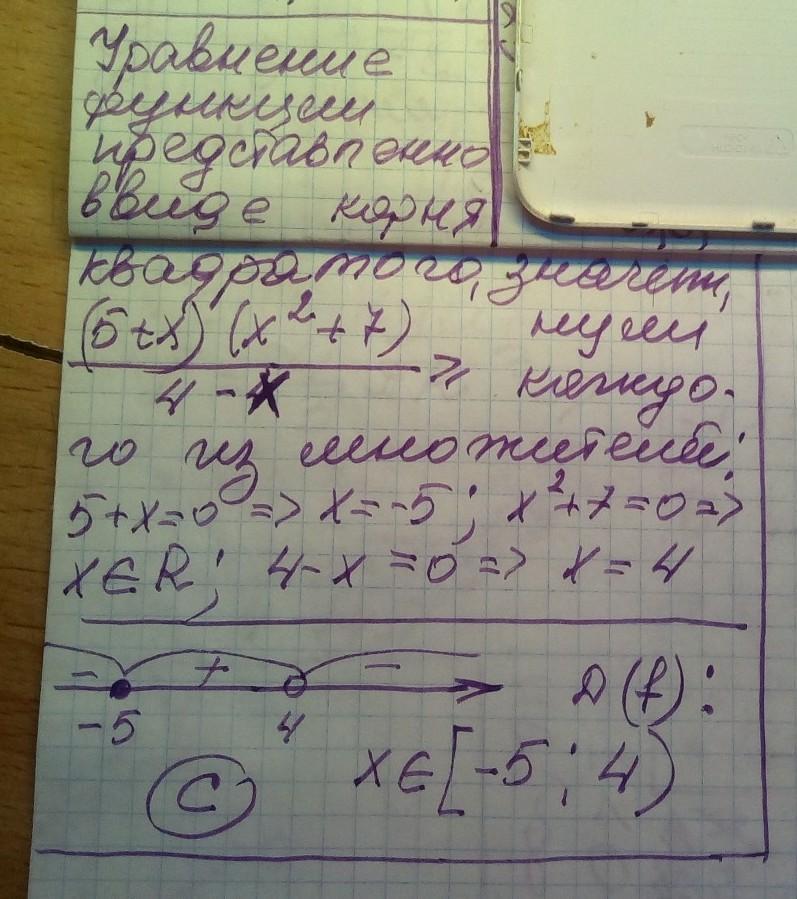 Уравнение
функции
представленно
ввиде корня
квадратого, значет,
(5+x) (x²+7) нули
4-x ≥ каждо-
го из множителей:
5+x=0 => x=-5; x²+7=0=>
x∈R; 4-x=0=> x=4
- + -
-5 4 D(f):
C x∈[-5; 4)